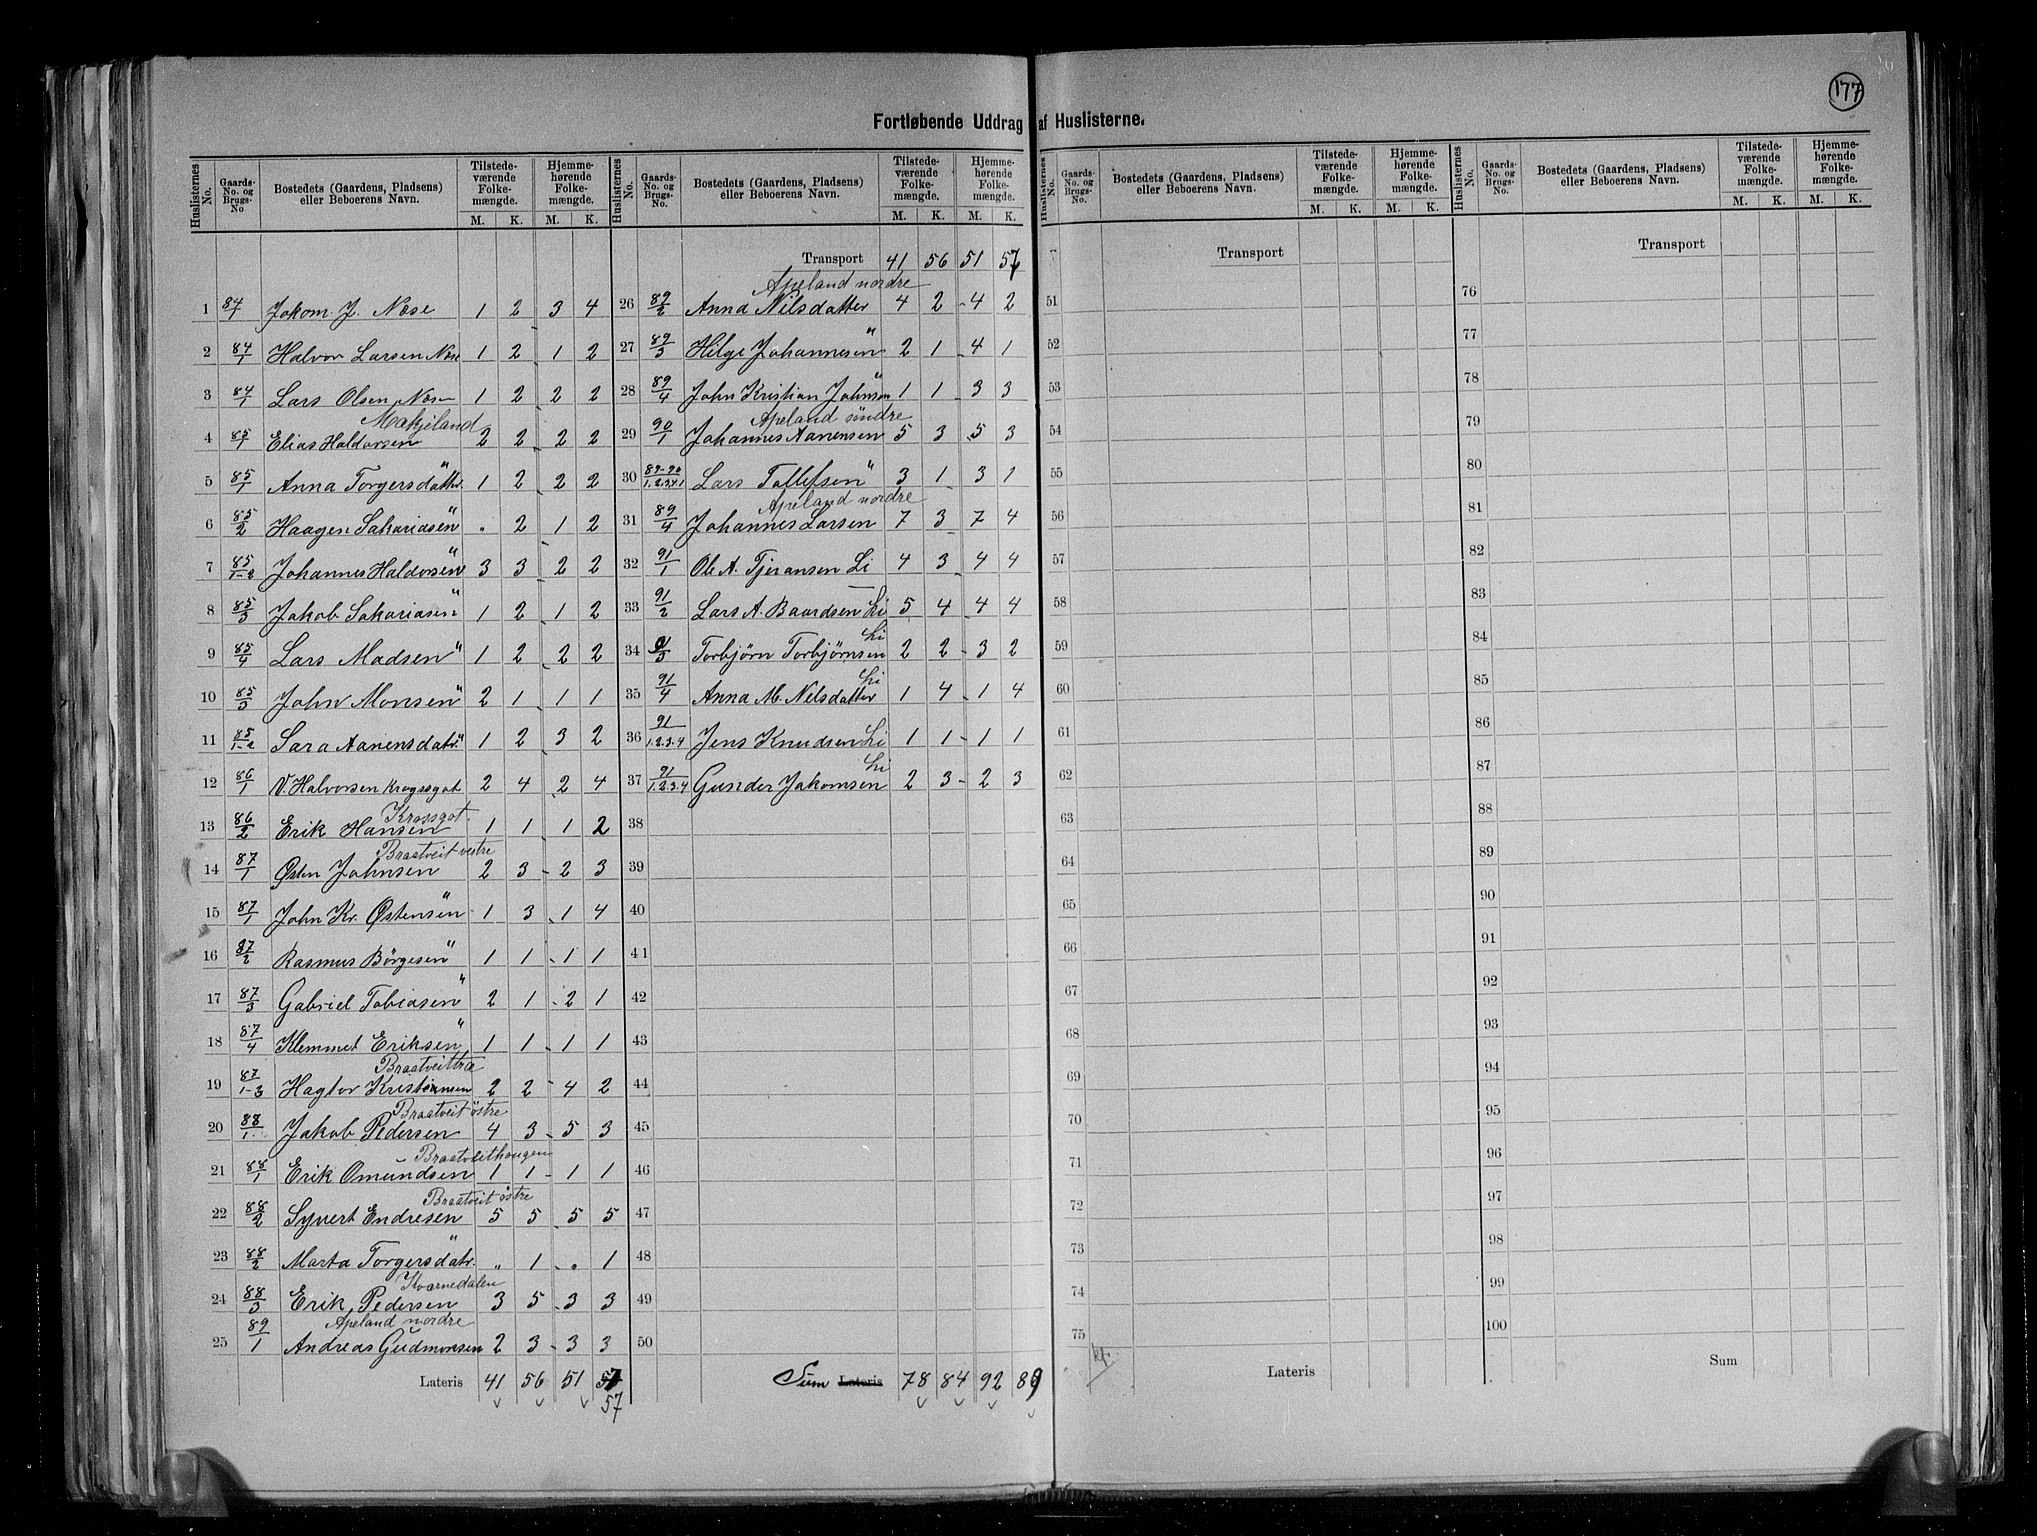 177
Fortløbende Uddrag af Huslisterne.
Huslisternes No. | Gaards-No. og Brugs-No. | Bostedets (Gaardens, Pladsens) eller Beboerens Navn. | Tilstedeværende Folkemængde. M. K. | Hjemmehørende Folkemængde. M. K.
1 84/1 Jakom J. Næse 1 2 3 4
2 84/1 Halvor Larsen Næse 1 2 1 2
3 84/1 Lars Olsen Næse 1 2 2 2
Makjeland
4 85/1 Elias Haldorsen 2 2 2 2
5 85/1 Anna Torgersdattr. " 1 2 2 2
6 85/2 Haagen Sakariasen " " 2 1 2
7 85/1-2 Johannes Haldorsen " 3 3 2 2
8 85/3 Jakob Sakariasen " 1 2 1 2
9 85/4 Lars Madsen " 1 2 2 2
10 85/5 John Monsen " 2 1 1 1
11 85/1-2 Sara Aanensdatr. " 1 2 3 2
12 86/1 V. Halvorsen Krogsgot 2 4 2 4
Krossgot.
13 86/2 Erik Hansen 1 1 1 2
Braatveit vestre
14 87/1 Østen Johnsen 2 3 2 3
15 87/1 John Kr. Østensen " 1 3 1 4
16 87/2 Rasmus Börgesen " 1 1 1 1
17 87/3 Gabriel Tobiasen " 2 1 2 1
18 87/4 Klemmet Eriksen " 1 1 1 1
Braatveittræ
19 87/1-3 Hagtor Kristiansen 2 2 4 2
Braatveit östre
20 88/1 Jakob Pedersen 4 3 5 3
Braatveithougen
21 88/1 Erik Omundsen 1 1 1 1
Braatveit östre
22 88/2 Syvert Endresen 5 5 5 5
23 88/2 Marta Torgersdatr. " " 1 " 1
Kvarnedalen
24 88/3 Erik Pedersen 3 5 3 3
Apeland nordre
25 89/1 Andreas Gudmonsen 2 3 3 3
Lateris 41 56 51 57
57
Transport 41 56 51 57
Apeland nordre
26 89/2 Anna Nilsdatter 4 2 4 2
27 89/3 Helge Johannesen " 2 1 4 1
28 89/4 John Kristian Johnsen " 1 1 3 3
Apeland söndre
29 90/1 Johannes Aanensen 5 3 5 3
30 89-90/1.2.3.4.1 Lars Tollefsen " 3 1 3 1
Apeland nordre
31 89/4 Johannes Larsen 7 3 7 4
32 91/1 Ole A. Tjeransen Li 4 3 4 4
33 91/2 Lars A. Baardsen Li 5 4 4 4
34 91/3 Torbjörn Torbjörnsen Li 2 2 3 2
35 91/4 Anna M. Nilsdatter Li 1 4 1 4
36 91/1.2.3.4 Jens Knudsen Li 1 1 1 1
37 91/1.2.3.4 Gunder Jakomsen Li 2 3 2 3
38
39
40
41
42
43
44
45
46
47
48
49
50
Sum Lateris 78 84 92 89
Huslisternes No. | Gaards-No. og Brugs-No. | Bostedets (Gaardens, Pladsens) eller Beboerens Navn. | Tilstedeværende Folkemængde. M. K. | Hjemmehørende Folkemængde. M. K.
Transport
51
52
53
54
55
56
57
58
59
60
61
62
63
64
65
66
67
68
69
70
71
72
73
74
75
Lateris
Transport
76
77
78
79
80
81
82
83
84
85
86
87
88
89
90
91
92
93
94
95
96
97
98
99
100
Sum